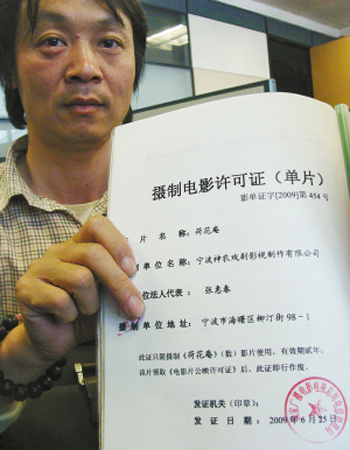 摄制电影许可证（单片）
影单证字[2009]第 454 号
片 名称：荷花庵
制单位名称：宁波神农戏剧影视制作有限公司
位法人代表： 张惠春
摄制单位地址： 宁波市海曙区柳汀街 98－1
此证只限摄制《荷花庵》（数）影片使用，有效期贰年；
该片领取《电影片公映许可证》后，此证即行作废。
发证机关（印章）：
发证日期： 2009 年 6 月 25 日